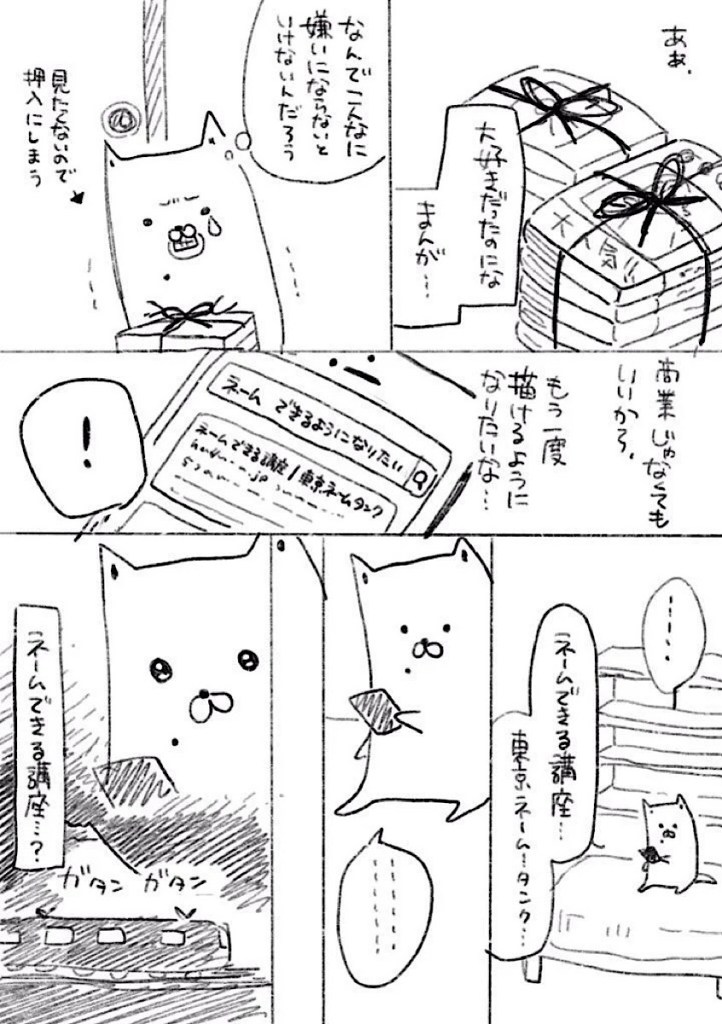 ああ、
大好きだったのにな
まんが…
大人気!!
なんでこんなに
嫌いにならないと
いけないんだろう
見たくないので
押入にしまう
商業じゃなくても
いいから、
もう一度
描けるように
なりたいな…
ネーム できるようになりたい
ネームできる講座/東京ネームタンク
!
ネームできる講座…
東京ネーム…タンク…
ネームできる講座…?
ガタン ガタン